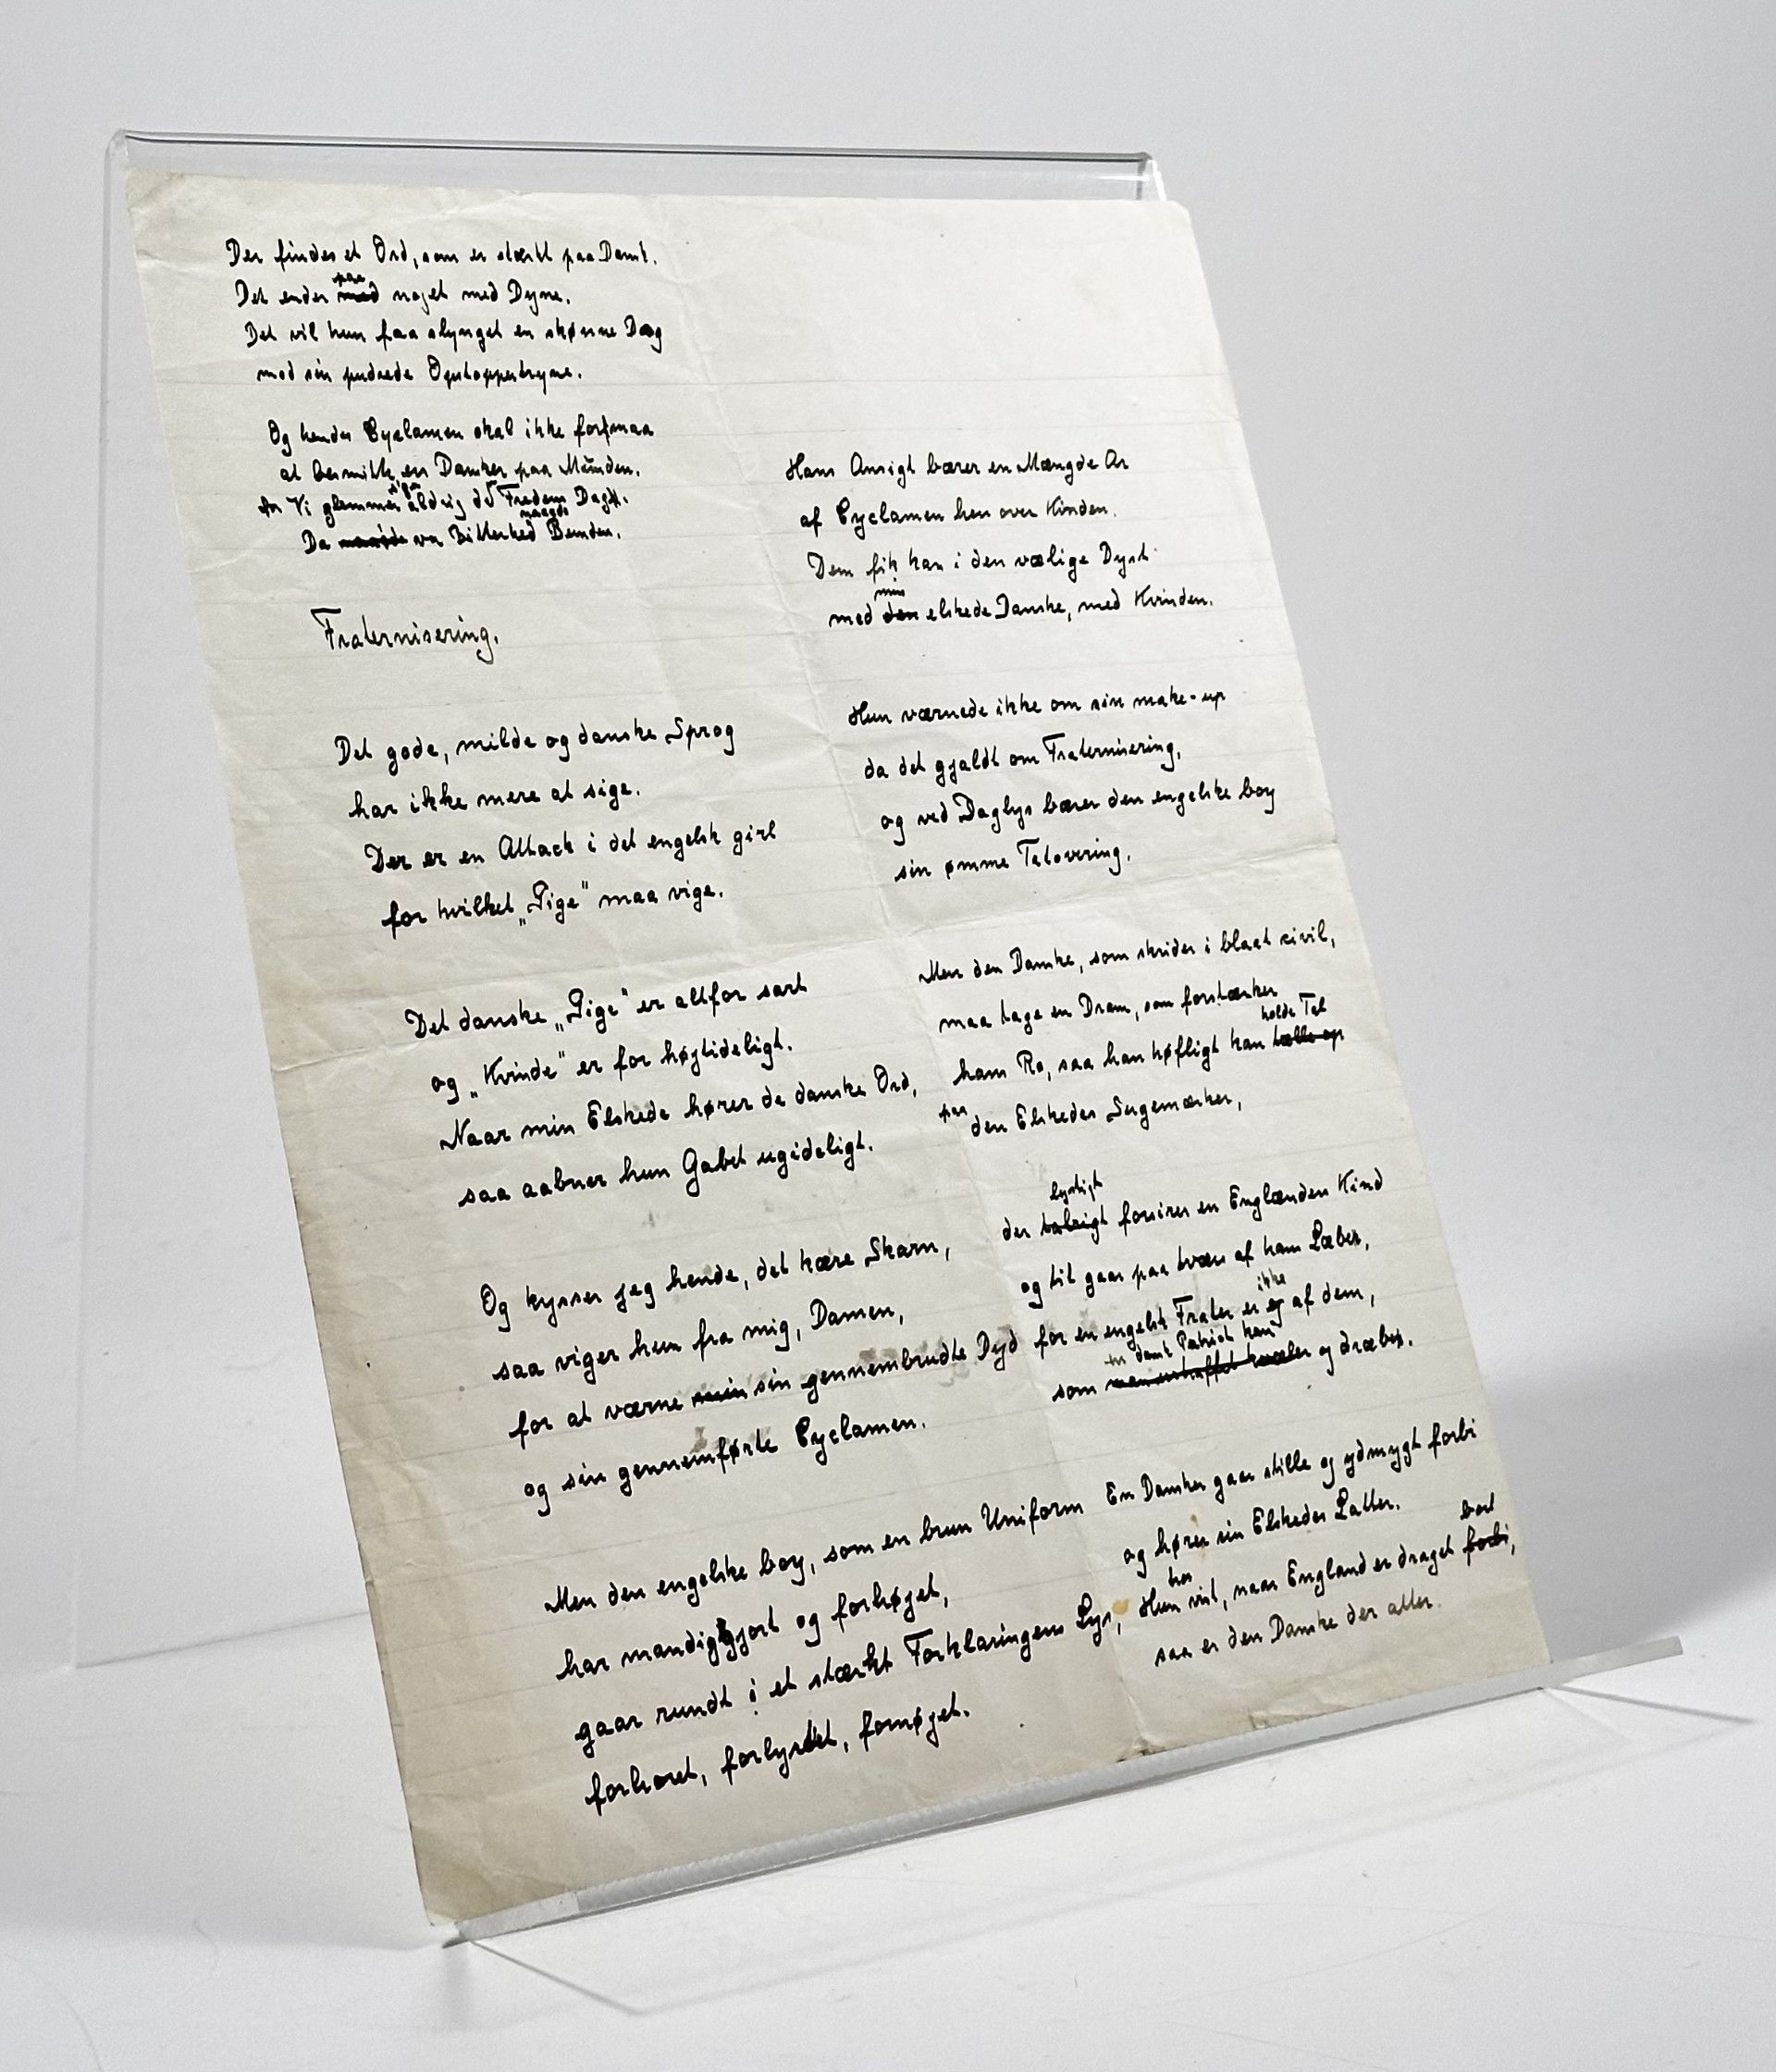 Der findes et Ord, som er stærkt paa Dansk.
Det ender paa med noget med Dyne.
Det vil hun faa slynget en skønne Dag
mod sin pudrede Opstoppertryne.
Og hendes Cyclamen skal ikke formaa
at besmitte en Dansker paa Munden.
for Vi glemmer aldrig de Fredens Dage.
Da var Bitterhed Bunden.
Fraternisering.
Det gode, milde og danske Sprog
har ikke mere at sige.
Der er en Attack i det engelsk girl
for hvilket „Pige" maa vige.
Det danske „Pige" er altfor sart
og „Kvinde" er for højtideligt.
Naar min Elskede hører de danske Ord,
saa aabner hun Gabet ugideligt.
Og kysser jeg hende, det kære Skarn,
saa viger hun fra mig, Damen,
for at værne min sin gennembrudte Dyd
og sin gennemførte Cyclamen.
Men den engelske boy, som en brun Uniform
har mandiggjort og forhøjet,
gaar rundt i et stærkt Forklaringens Lys,
forhoret, forlystet, fornøjet.
Hans Ansigt bærer en Mængde Ar
af Cyclamen hen over Kinden.
Dem fik han i den vælige Dyst
med den min elskede Danske, med Kvinden.
Hun værnede ikke om sin make-up
da det gjaldt om Fraternisering,
og ved Daglys bærer den engelske boy
sin ømme Tatovering.
Men den Danske, som skrider i blaat civil,
maa tage en Dram, som forstærker
ham Ro, saa han høfligt kan tælle op holde Tal
paa den Elskedes Sugemærker,
der talrigt lystigt forsirer en Englænders Kind
og tit gaar paa tværs af hans Læber,
for en engelsk Frater er ej ikke af dem,
som en dansk Patriot kan og dræber.
En Dansker gaar stille og ydmygt forbi
og hører sin Elskedes Latter.
Hun har vist, naar England er draget forbi, bort
saa er den Danske der atter.